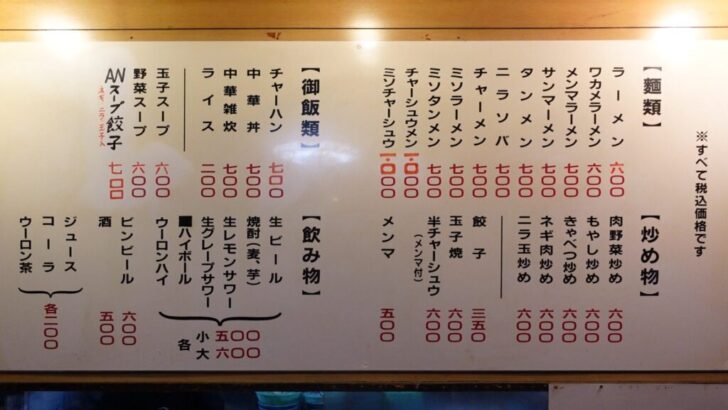 ※すべて税込価格です
【麵類】
ラーメン 六〇〇
ワカメラーメン 七〇〇
メンマラーメン 七〇〇
サンマーメン 七〇〇
タンメン 七〇〇
ニラソバ 七〇〇
チャーメン 七〇〇
ミソラーメン 七〇〇
ミソタンメン 七〇〇
チャーシュウメン 一、〇〇〇
ミソチャーシュウ 一、〇〇〇
【御飯類】
チャーハン 七〇〇
中華丼 七〇〇
中華雑炊 七〇〇
ライス 二〇〇
玉子スープ 六〇〇
野菜スープ 六〇〇
ANスープ餃子 七〇〇
【炒め物】
肉野菜炒め 六〇〇
もやし炒め 六〇〇
きゃべつ炒め 六〇〇
ネギ肉炒め 六〇〇
ニラ玉炒め 六〇〇
餃子 三五〇
玉子焼 六〇〇
半チャーシュウ 六〇〇
(メンマ付)
メンマ 五〇〇
【飲み物】
生ビール
焼酎(麦、芋)
生レモンサワー
生グレープサワー
ハイボール
ウーロンハイ
各 小 五〇〇
大 六〇〇
ビンビール 六〇〇
酒 五〇〇
ジュース
コーラ
ウーロン茶
各二〇〇